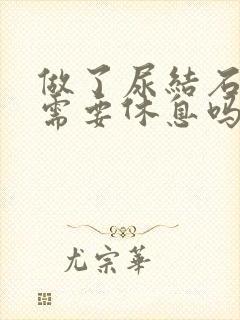 做了尿結石
需要休息吗
尤宗華